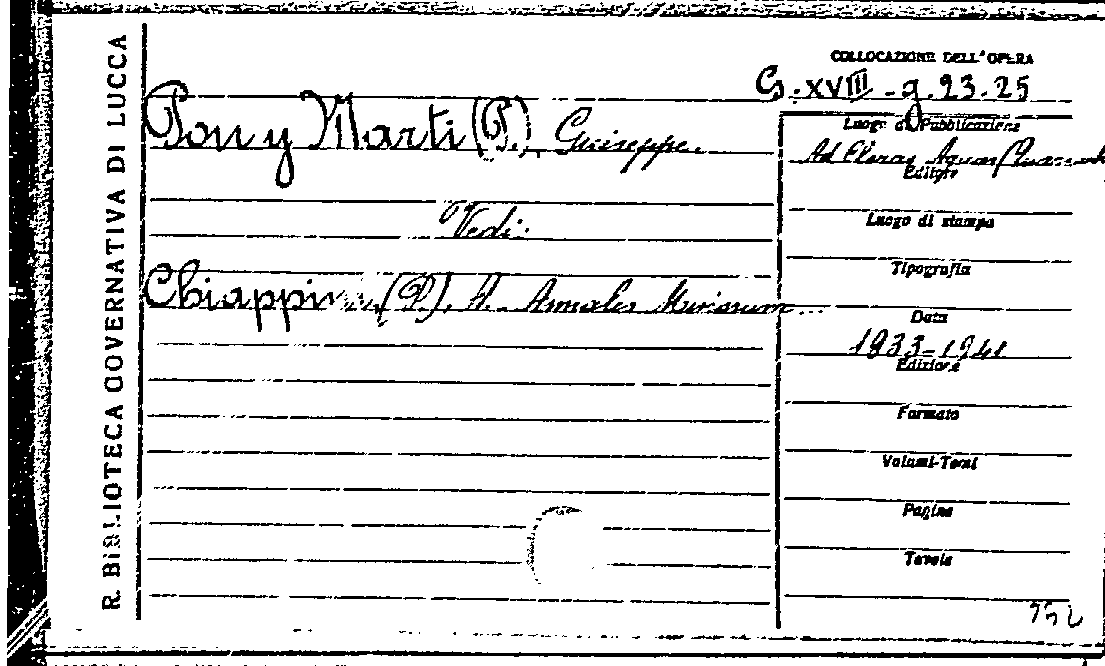 R. BIBLIOTECA GOVERNATIVA DI LUCCA
COLLOCAZIONE DELL'OPERA
G. XVIII - g. 23. 25
Pou y Marti (P.), Giuseppe.
Luogo di Pubblicazione
Ad Claras Aquas
Editore
Vedi:
Luogo di stampa
Tipografia
Chiappini (P.), A. Annales Minorum...
Data
1933-1941
Edizione
Formato
Volumi-Tomi
Pagine
Tavole